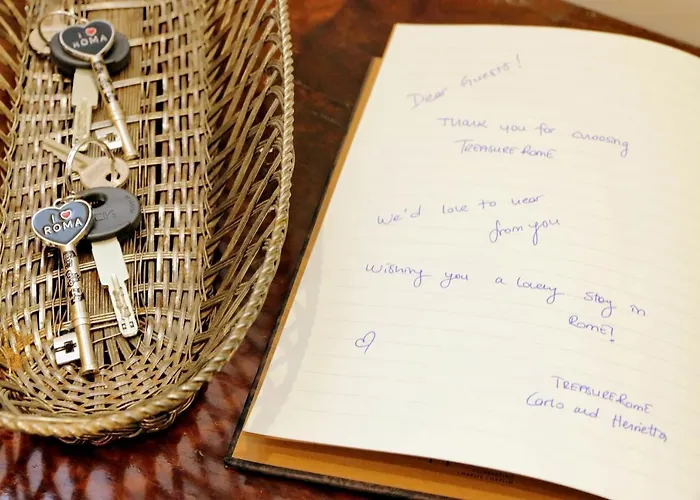 I ROMA
I ROMA
Dear Guests!
THANK you for choosing
TREASURE ROME
We'd love to hear
from you
Wishing you a lovely stay in
ROME!
TREASURE ROME
Carlo and Henrietta